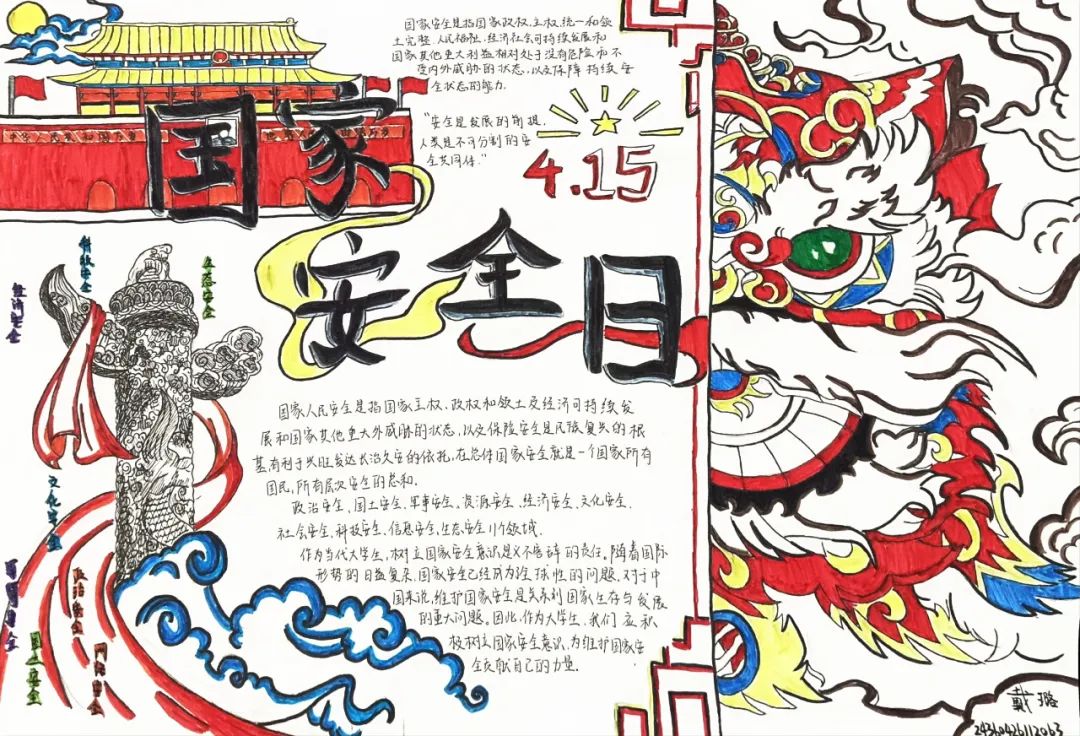 国家安全是指国家政权、主权、统一和领
土完整、人民福祉、经济社会可持续发展和
国家其他重大利益相对处于没有危险和不
受内外威胁的状态，以及保障持续安
全状态的能力.
"安全是发展的前提，
人类是不可分割的安
全共同体."
4.15
国家
安全日
科技安全
生态安全
经济安全
文化安全
政治安全
网络安全
国土安全
国家人民安全是指国家主权、政权和领土及经济可持续发
展和国家其他重大外威胁的状态，以及保险安全是民族复兴的根
基，有利于兴旺发达长治久安的依托，在总体国家安全就是一个国家所有
国民，所有层次安全的总和.
政治安全、国土安全、军事安全、资源安全、经济安全、文化安全、
社会安全、科技安全、信息安全、生态安全11个领域.
作为当代大学生，树立国家安全意识是义不容辞的责任。随着国际
形势的日益复杂，国家安全已经成为全球性的问题，对于中
国来说，维护国家安全是关系到国家生存与发展
的重大问题。因此，作为大学生，我们应积
极树立国家安全意识，为维护国家安
全贡献自己的力量.
戴璐